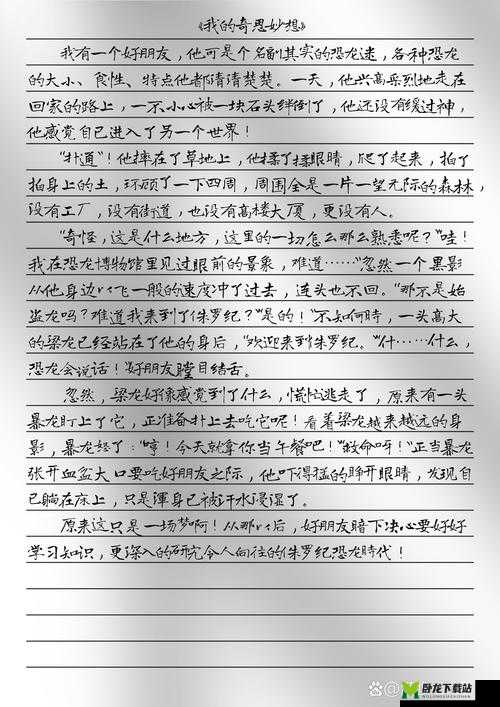 《我的奇思妙想》
我有一个好朋友，他可是个名副其实的恐龙迷，各种恐龙
的大小、食性、特点他都清清楚楚。一天，他兴高采烈地走在
回家的路上，一不小心被一块石头绊倒了，他还没有缓过神，
他感觉自己进入了另一个世界！
“扑通”！他摔在了草地上，他揉了揉眼睛，爬了起来，拍了
拍身上的土，环顾了一下四周，周围全是一片一望无际的森林，
没有工厂，没有街道，也没有高楼大厦，更没有人。
“奇怪，这是什么地方，这里的一切怎么那么熟悉呢？”哇！
我在恐龙博物馆里见过眼前的景象，难道……”忽然一个黑影
从他身边以飞一般的速度冲了过去，连头也不回。“那不是始
盗龙吗？难道我来到了侏罗纪？”是的！”不知何時，一头高大
的梁龙已经站在了他的身后，“欢迎来到侏罗纪。”什……什么，
恐龙会说话！”好朋友瞠目结舌。
忽然，梁龙好像感觉到了什么，慌忙逃走了，原来有一头
暴龙盯上了它，正准备扑上去吃它呢！看着梁龙越来越远的身
影，暴龙怒了：“哼！今天就拿你当午餐吧！”“救命呀！”正当暴龙
张开血盆大口要吃好朋友之际，他吓得猛的睁开眼睛，发现自
己躺在床上，只是渾身已被汗水浸湿了。
原来这只是一场梦啊！从那以后，好朋友暗下决心要好好
学习知识，更深入的研究令人向往的侏罗纪恐龙時代！
卧龙下载站